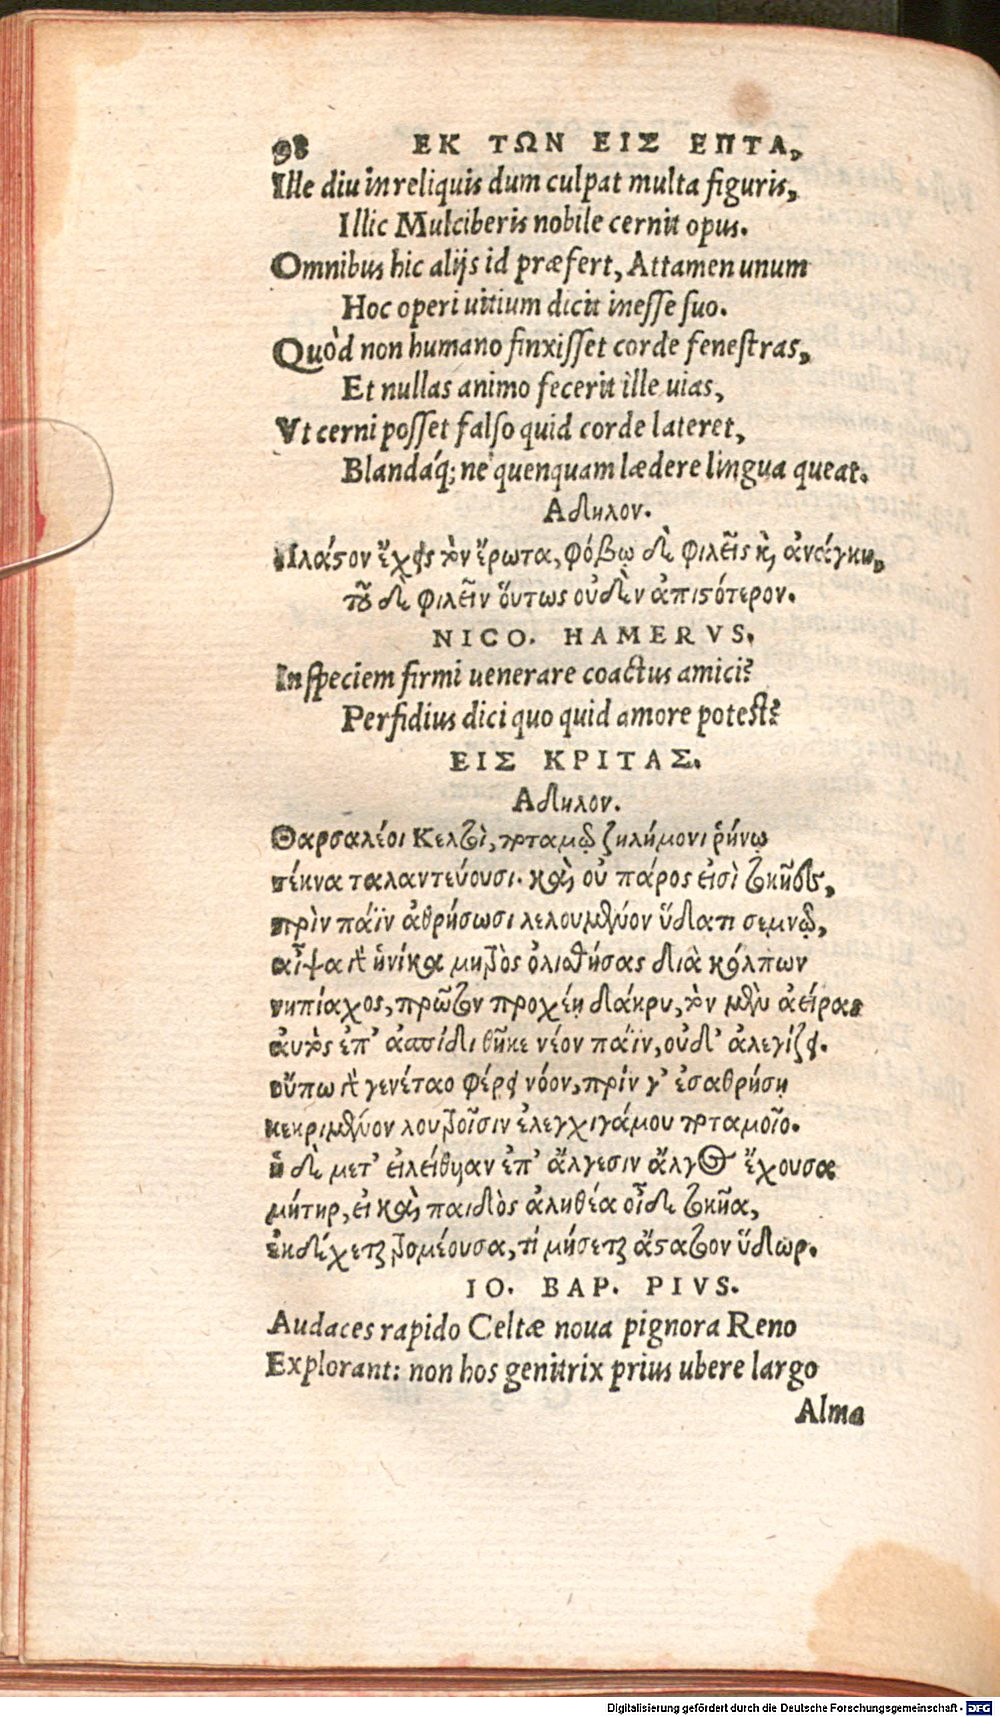 98 ΕΚ ΤΩΝ ΕΙΣ ΕΠΤΑ,
Ille diu in reliquis dum culpat multa figuris,
Illic Mulciberis nobile cernit opus.
Omnibus hic alijs id præfert, Attamen unum
Hoc operi uitium dicit inesse suo.
Quòd non humano finxisset corde fenestras,
Et nullas animo fecerit ille uias,
Vt cerni posset falso quid corde lateret,
Blandáq; ne quenquam lædere lingua queat.
Αδηλον.
Πλάστον ἔχεις τὸν ἔρωτα, φόβῳ δὲ φιλεῖς καὶ ἀνάγκη,
τοῦ δὲ φιλεῖν ὅυτως οὐδὲν ἀπιστότερον.
NICO. HAMERVS.
In speciem firmi uenerare coactus amici?
Perfidius dici quo quid amore potest?
ΕΙΣ ΚΡΙΤΑΣ.
Αδηλον.
Θαρσαλέοι Κελτοὶ, ποταμῷ ζηλήμονι ῥήνῳ
τέκνα ταλαντεύουσι. καὶ οὐ πάρος εἰσὶ τοκῆες,
πρὶν πάϊν ἀθρήσωσι λελουμένον ὕδατι σεμνῷ,
αἶψα γὰρ ἡνίκα μητρὸς ὀλισθήσας διὰ κόλπων
νηπίαχος, πρῶτον προχέῃ δάκρυ, τὸν μὲν ἀείρας
ἀυτὸς ἐπ' ἀσπίδι θῆκε νέον πάϊν, οὐδ' ἀλεγίζει.
οὔπω γὰρ γενέταο φέρει νόον, πρίν γ' ἐσαθρήσῃ
κεκριμένον λουτροῖσιν ἐλεγχιγάμου ποταμοῖο.
ἡ δὲ μετ' εἰλείθυιαν ἐπ' ἄλγεσιν ἄλγος ἔχουσα
μήτηρ, εἰ καὶ παιδὸς ἀληθέα οἶδε τοκῆα,
ἐκδέχεται τρομέουσα, τί μήσεται ἄστατον ὕδωρ.
IO. BAP. PIVS.
Audaces rapido Celtæ noua pignora Reno
Explorant: non hos genitrix prius ubere largo
Alma
Digitalisierung gefördert durch die Deutsche Forschungsgemeinschaft - DFG